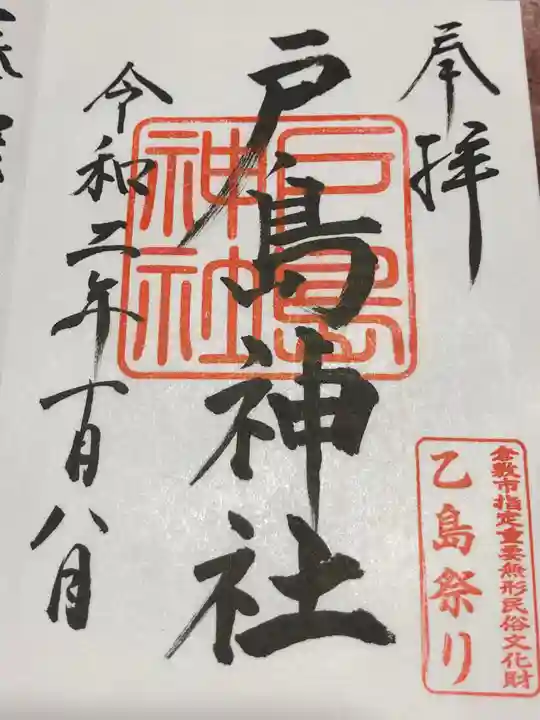 奉拝
戸島神社
戸島
神社
令和二年十月八月
倉敷市指定重要無形民俗文化財
乙島祭り